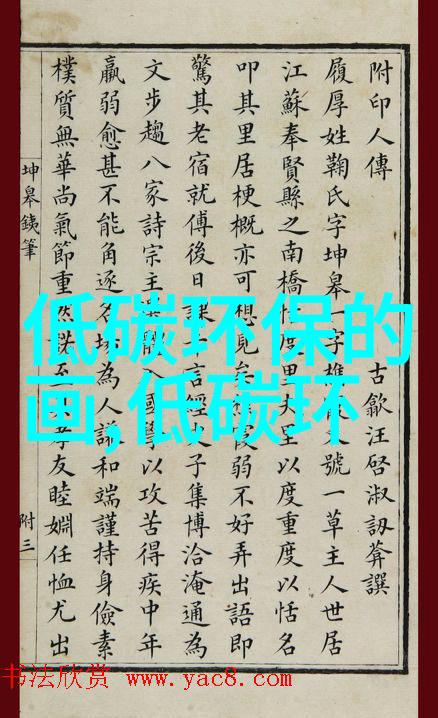 附印人傳 古歙汪啓淑訒葊譔
履厚姓鞠氏字坤皋一字樵號一草主人世居
江蘇奉賢縣之南橋恬度里夫里以度重度以恬名
叩其里居梗概亦可想見矣弱不好弄出語即
驚其老宿就傅後日課千言經史子集博洽淹通為
文步趨八家詩宗主入國學以攻苦得疾中年
羸弱愈甚不能角逐名場為人謙和端謹持身儉素
樸質無華尚氣節重然諾至孝友睦婣任恤尤出
坤皋鐵筆
附三
低碳环保的
画,低碳环
书法欣赏 www.yac8.com